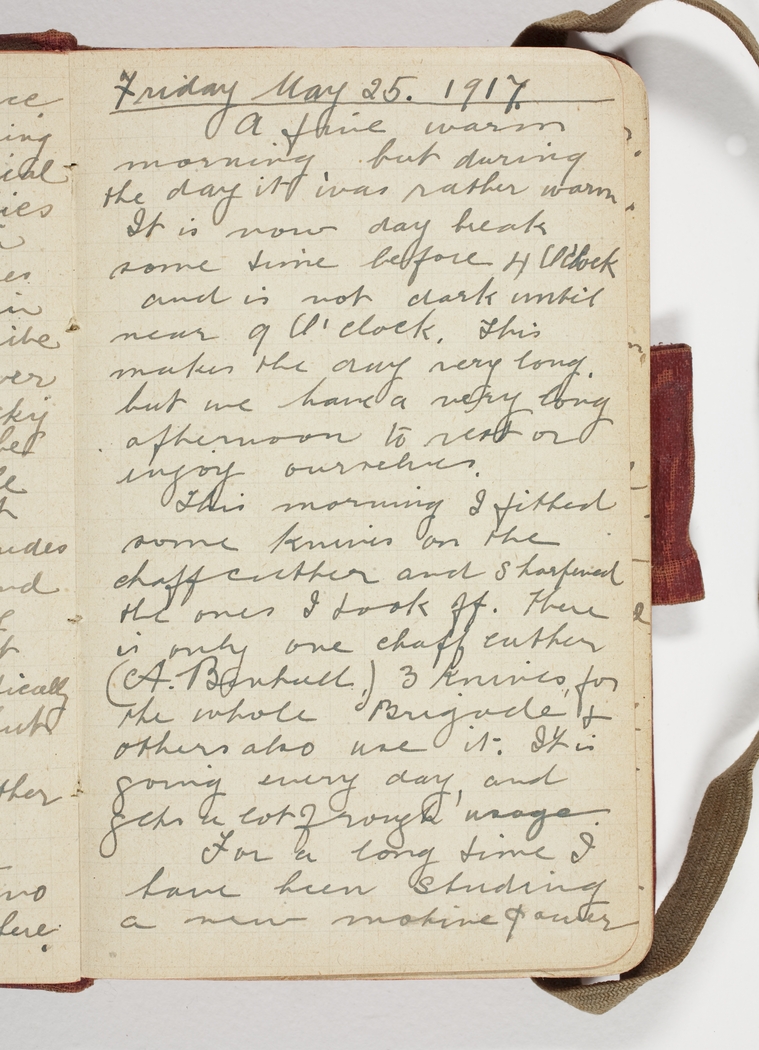 ce
ing
ial
ies
es
in
ibe
ver
cky
be
le
t
udes
nd
t
tically
but
ther
no
here.
Friday May 25. 1917.
A fine warm
morning but during
the day it was rather warm
It is now day break
some time before 4 O'Clock
and is not dark until
near 9 O'clock. This
makes the day very long.
but we have a very long
afternoon to rest or
injoy ourselves.
This morning I fitted
some knives on the
chaff cutter and sharpened
the ones I took off. There
is only one chaff cutter
(A. Benhall.) 3 knives, for
the whole Brigade &
others also use it. It is
going every day, and
gets a lot of rough usage.
For a long time I
have been studing
a new motive power